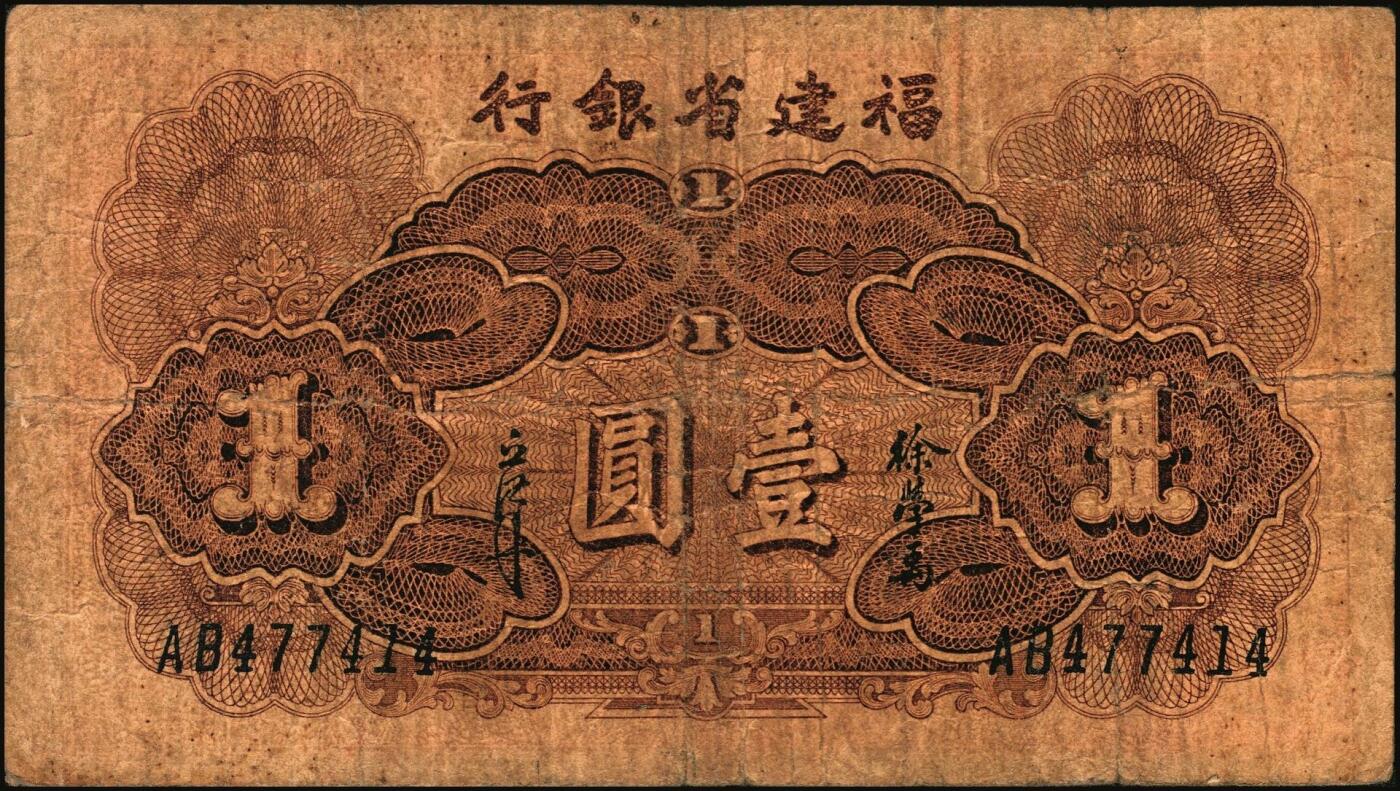 福建省銀行
1
1
壹圓
1
1
徐學禹
1
AB477414
AB477414